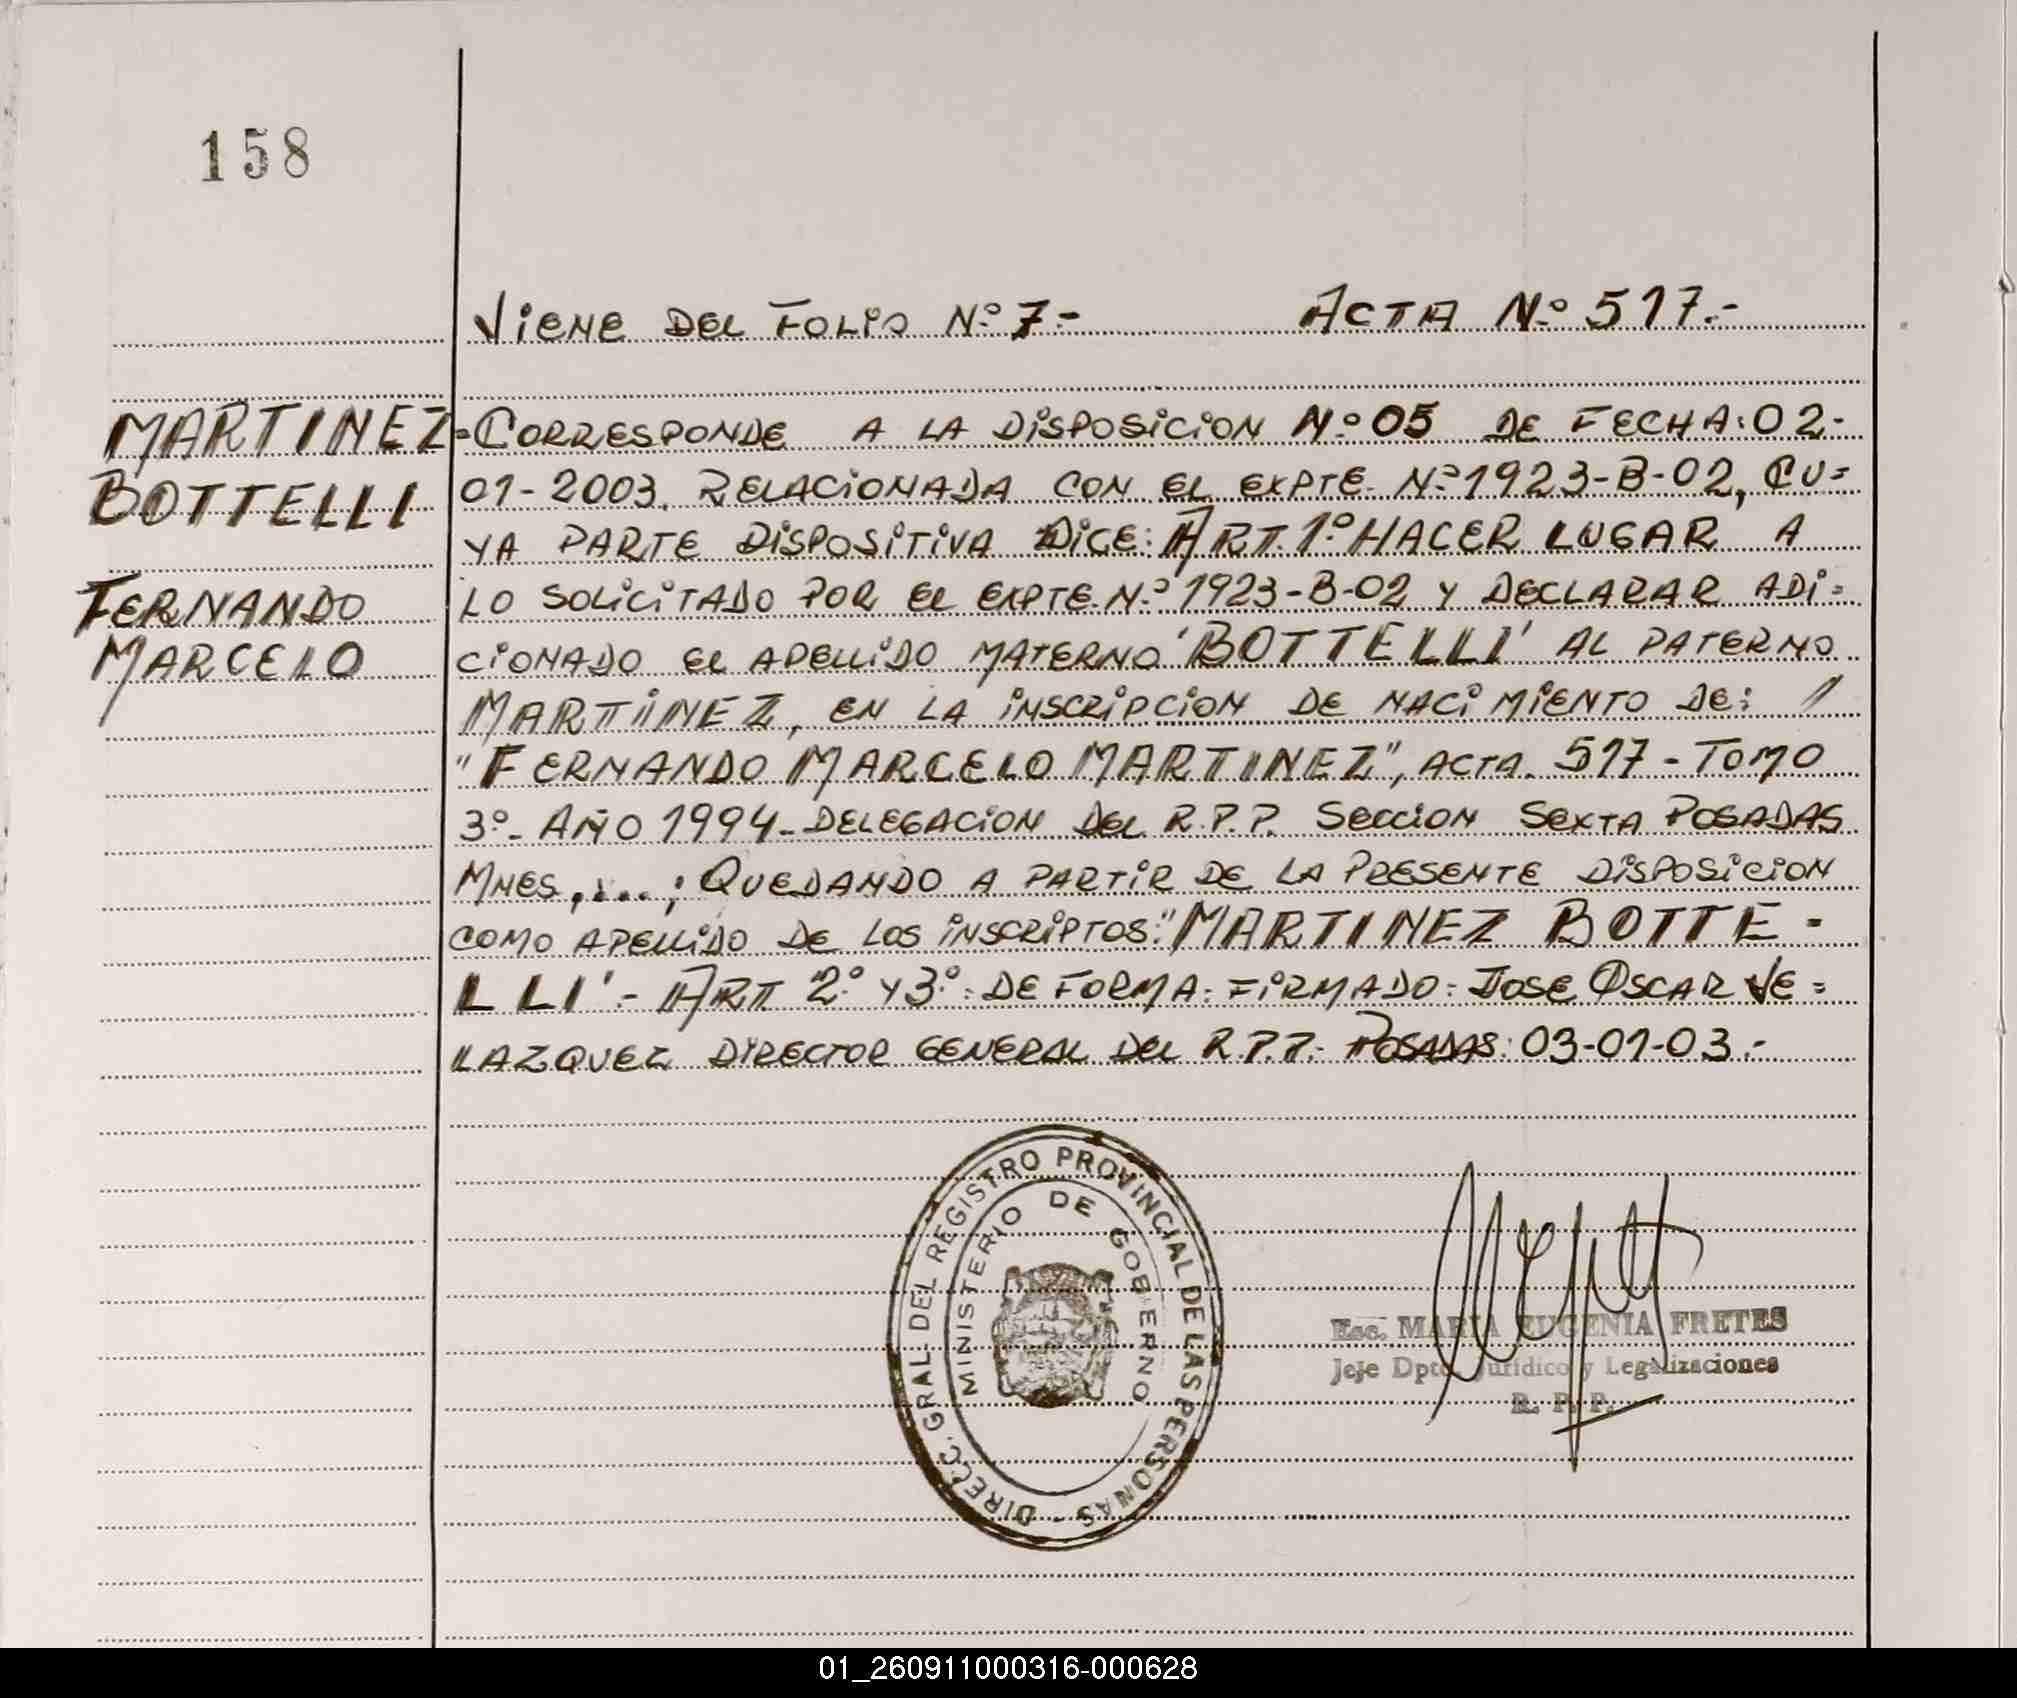 158
VIENE DEL FOLIO N.º 7.- ACTA N.º 517.-
MARTINEZ
BOTTELLI
FERNANDO
MARCELO
=CORRESPONDE A LA DISPOSICION N.º 05 DE FECHA: 02-
01-2003. RELACIONADA CON EL EXPTE. N.º 1923-B-02, CU=
YA PARTE DISPOSITIVA DICE: ART. 1.º HACER LUGAR A
LO SOLICITADO POR EL EXPTE. N.º 1923-B-02 Y DECLARAR ADI=
CIONADO EL APELLIDO MATERNO 'BOTTELLI' AL PATERNO
MARTIINEZ, EN LA INSCRIPCION DE NACIMIENTO DE: /
"FERNANDO MARCELO MARTINEZ", ACTA. 517 - TOMO
3º- AÑO 1994- DELEGACION DEL R.P.P. SECCION SEXTA POSADAS
MNES,....; QUEDANDO A PARTIR DE LA PRESENTE DISPOSICION
COMO APELLIDO DE LOS INSCRIPTOS: "MARTINEZ BOTTE-
LLI'.- ART 2.º Y 3.º. DE FORMA: FIRMADO: JOSE OSCAR VE=
LAZQUEZ DIRECTOR GENERAL DEL R.P.P.- POSADAS: 03-01-03.-
DIRECC. GRAL. DEL REGISTRO PROVINCIAL DE LAS PERSONAS -
MINISTERIO DE GOBIERNO
Esc. MARIA EUGENIA FRETES
Jefe Dpto. Jurídico y Legalizaciones
R. P. P.
01_260911000316-000628